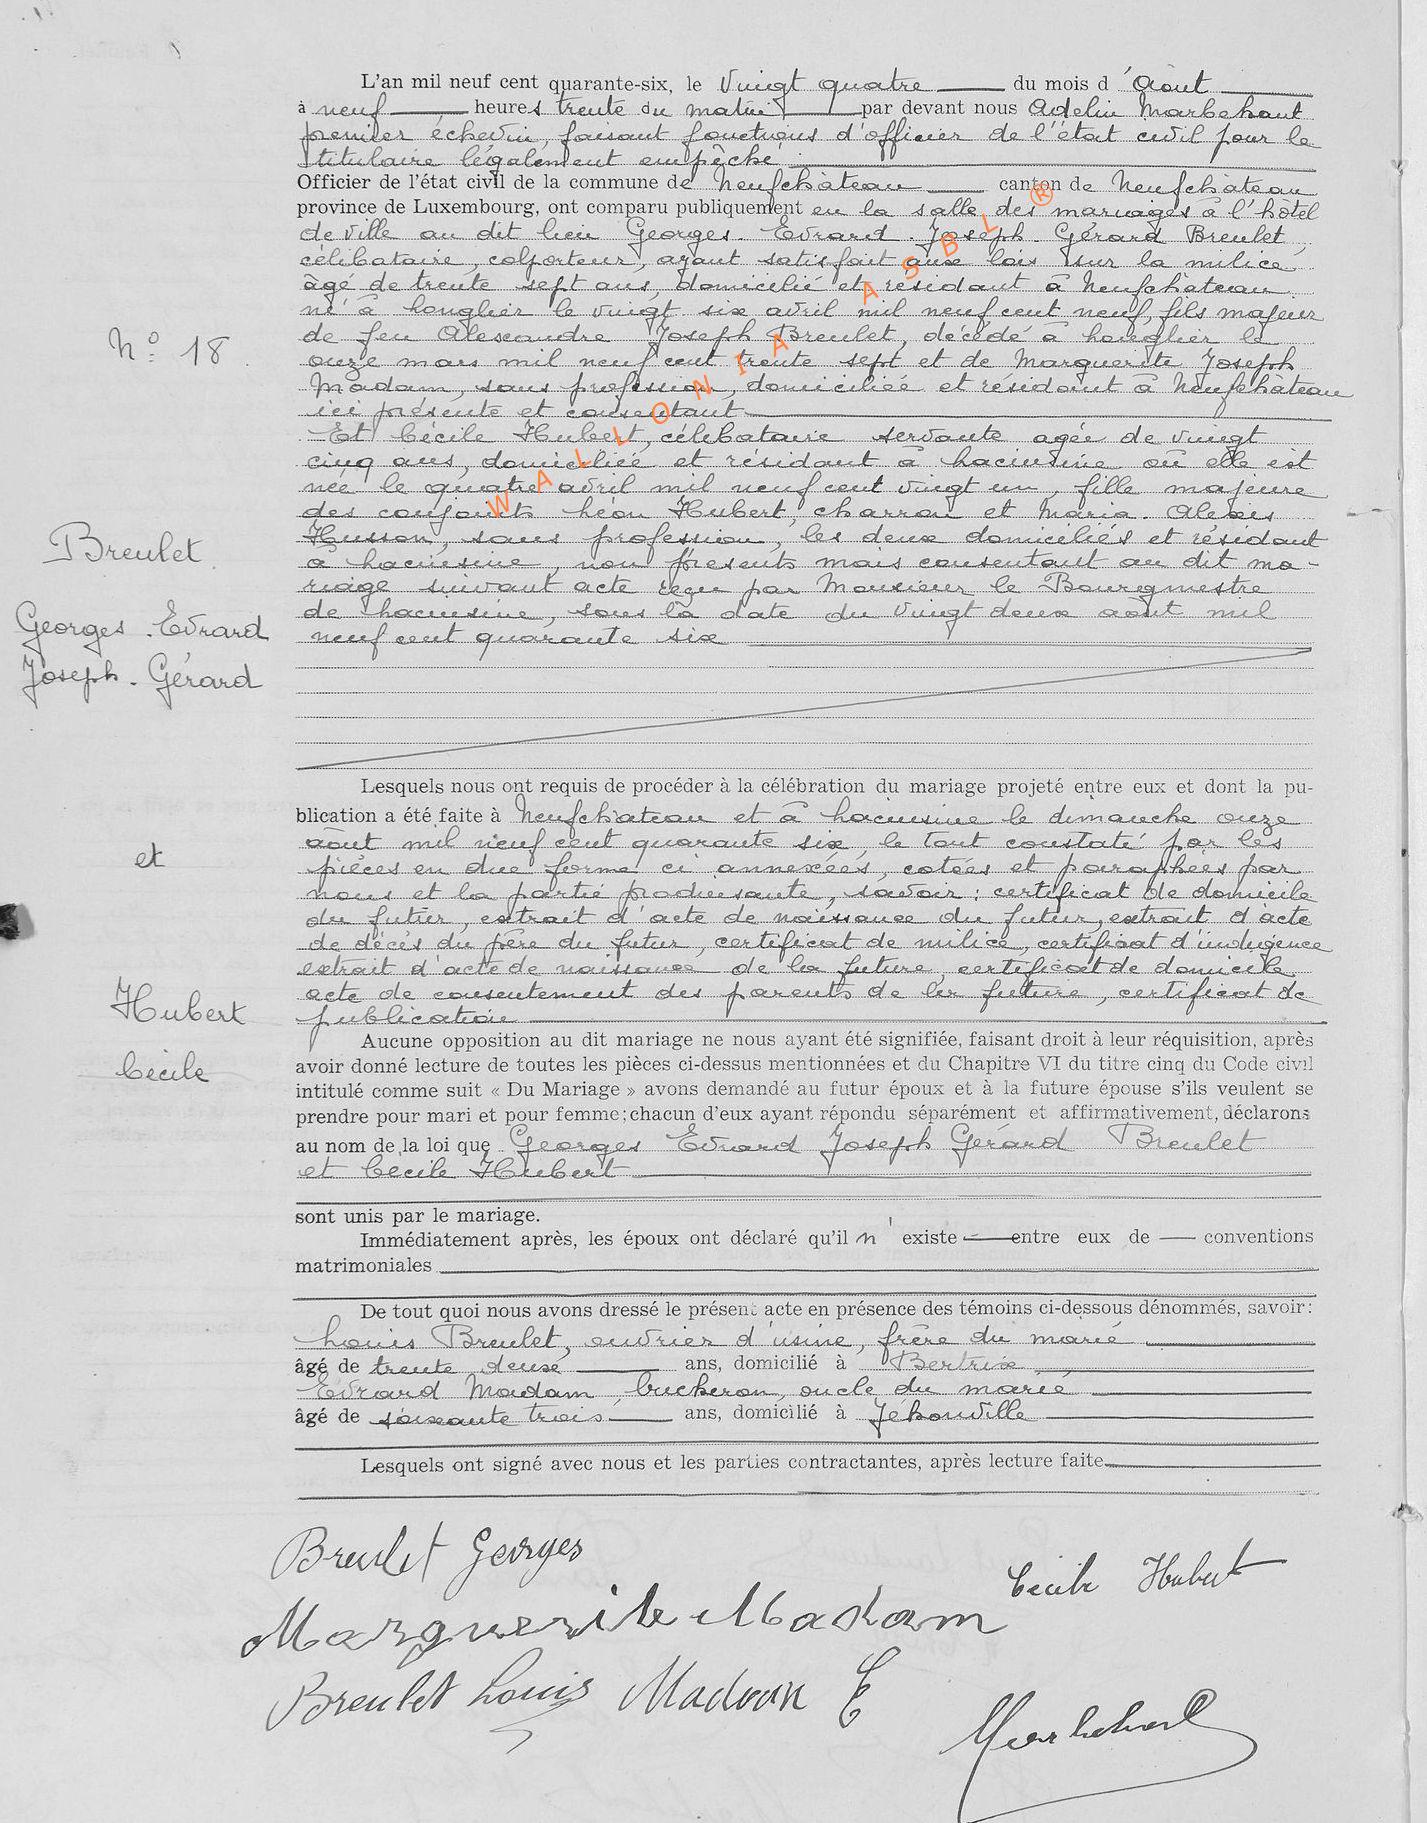 L'an mil neuf cent quarante-six, le vingt quatre du mois d'août
à neuf heures trente du matin par devant nous Adelin Marbehant
premier échevin, faisant fonctions d'officier de l'état civil pour le
titulaire légalement empêché
Officier de l'état civil de la commune de Neufchâteau canton de Neufchâteau
province de Luxembourg, ont comparu publiquement en la salle des mariages à l'hôtel
de ville au dit lieu Georges. Evrard. Joseph. Gérard Breulet,
célibataire, colporteur, ayant satisfait aux lois sur la milice
âgé de trente sept ans, domicilié et résidant à Neufchâteau
né à Longlier le vingt six avril mil neuf cent neuf, fils majeur
de feu Alexandre Joseph Breulet, décédé à Longlier le
onze mars mil neuf cent trente sept et de Marguerite Joseph
Madam, sans profession, domiciliée et résidant à Neufchâteau
ici présente et consentant
Et Cécile Hubert, célibataire servante agée de vingt
cinq ans, domiciliée et résidant à Hacinsine où elle est
née le quatre avril mil neuf cent vingt un, fille majeure
des conjoints Léon Hubert, charron et Maria. Alexis
Husson, sans profession, les deux domiciliés et résidant
à Lacuisine, non présents mais consentant au dit ma-
riage suivant acte reçu par Monsieur le Bourgmestre
de Lacuisine, sous la date du vingt deux août mil
neuf cent quarante six
N° 18
Breulet
Georges. Evrard
Joseph. Gérard
et
Hubert
Cécile
Lesquels nous ont requis de procéder à la célébration du mariage projeté entre eux et dont la pu-
blication a été faite à Neufchâteau et à Lacuisine le dimanche onze
août mil neuf cent quarante six, le tout constaté par les
pièces en due forme ci annexées, cotées et paraphées par
nous et la partie produisante, savoir : certificat de domicile
du futur, extrait d'acte de naissance du futur, extrait d'acte
de décès du père du futur, certificat de milice, certificat d'indigence
extrait d'acte de naissance de la future, certificat de domicile
acte de consentement des parents de la future, certificat de
publication
Aucune opposition au dit mariage ne nous ayant été signifiée, faisant droit à leur réquisition, après
avoir donné lecture de toutes les pièces ci-dessus mentionnées et du Chapitre VI du titre cinq du Code civil
intitulé comme suit « Du Mariage » avons demandé au futur époux et à la future épouse s'ils veulent se
prendre pour mari et pour femme; chacun d'eux ayant répondu séparément et affirmativement, déclarons
au nom de la loi que Georges Evrard Joseph Gérard Breulet
et Cécile Hubert
sont unis par le mariage.
Immédiatement après, les époux ont déclaré qu'il n'existe entre eux de conventions
matrimoniales
De tout quoi nous avons dressé le présent acte en présence des témoins ci-dessous dénommés, savoir:
Louis Breulet, ouvrier d'usine, frère du marié
âgé de trente deux ans, domicilié à Bertrix
Evrard Madam, bucheron, oncle du marié
âgé de soixante trois ans, domicilié à Jéhonville
Lesquels ont signé avec nous et les parties contractantes, après lecture faite
Breulet Georges
Cécile Hubert
Marguerite Madam
Breulet Louis Madam E
Marbehant
WALLONIA ASBL ®